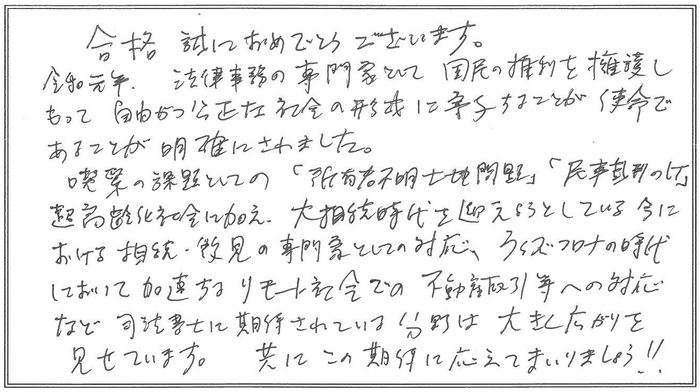 合格 誠におめでとうございます。
令和元年、法律事務の専門家として 国民の権利を擁護し
もって 自由かつ公正な社会の形成に寄与することが使命で
あることが明確にされました。
喫緊の課題としての「所有者不明土地問題」「民事裁判のIT」
超高齢化社会に加え、大相続時代を迎えようとしている今に
おける相続・後見の専門家としての対応、ウィズコロナの時代
において加速するリモート社会での不動産取引等への対応
など 司法書士に期待されている分野は 大きく広がりを
見せています。 共に この期待に応えてまいりましょう!!